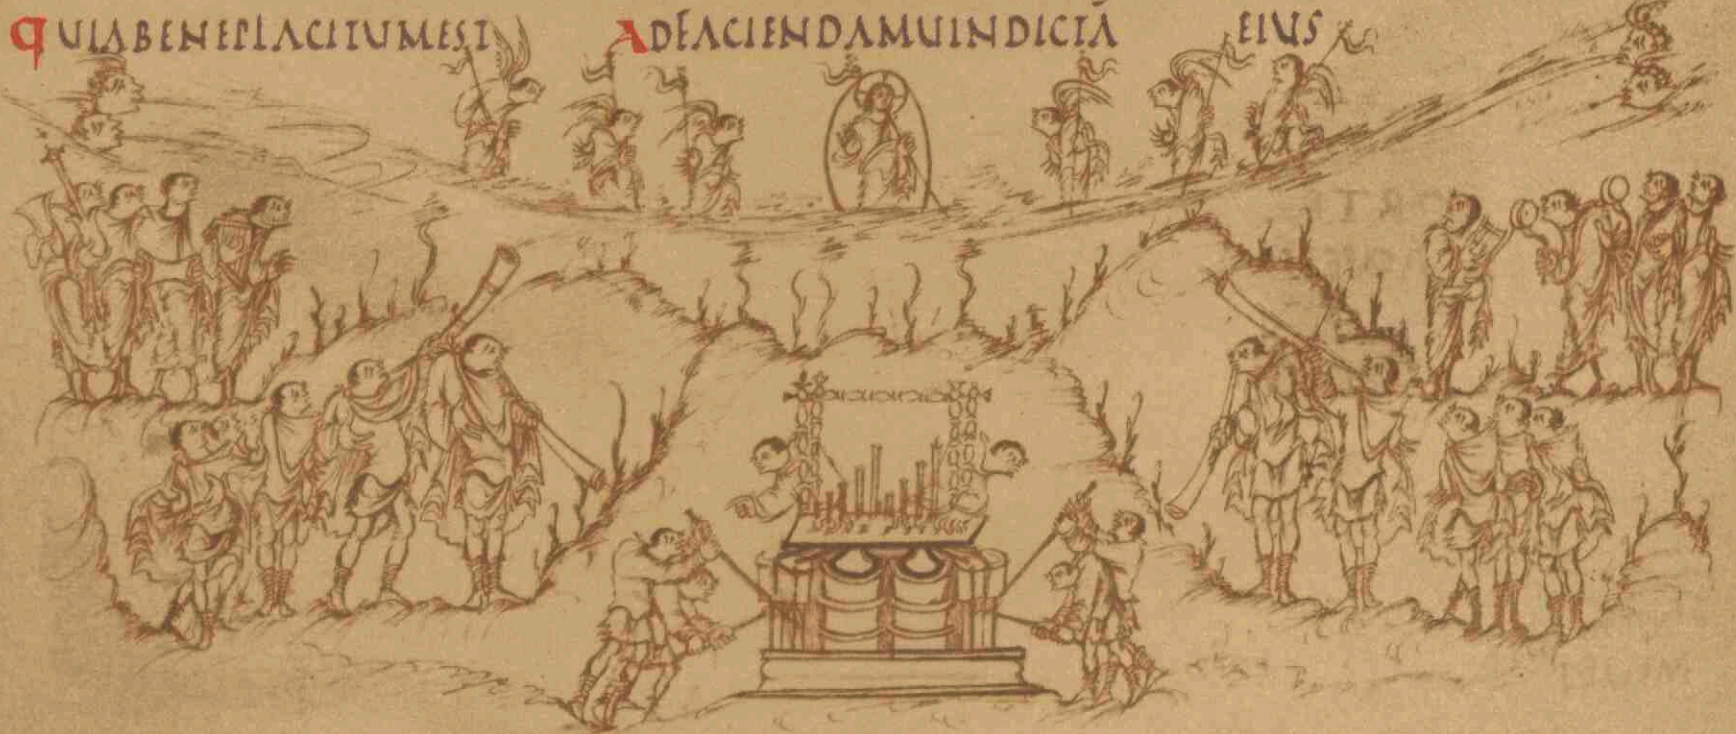 QUIABENEPLACITUMEST ADFACIENDAMUINDICTĀ EIUS